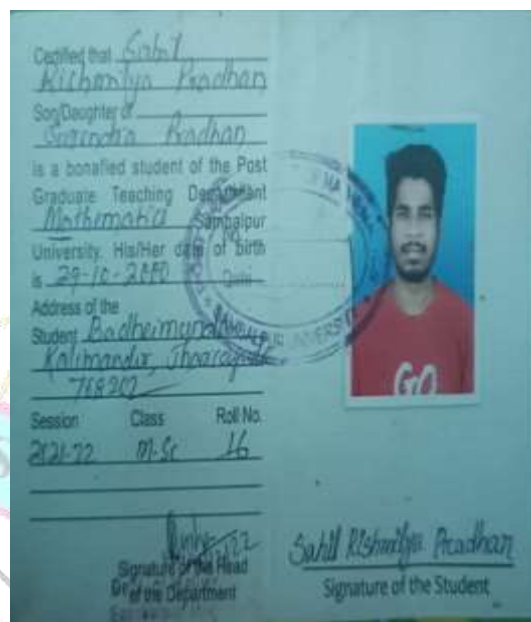 Certified that Sahil
Rishmitya Pradhan
Son/Daughter of
Surendra Pradhan
is a bonafied student of the Post
Graduate Teaching Department
Mathematics Sambalpur
University. His/Her date of birth
is 29-10-2000
Address of the
Student
Kalimandir,
768202
Session Class Roll No.
2021-22 M.Sc 16
Signature of the Head
of the Department
Sahil Rishmitya Pradhan
Signature of the Student
GO